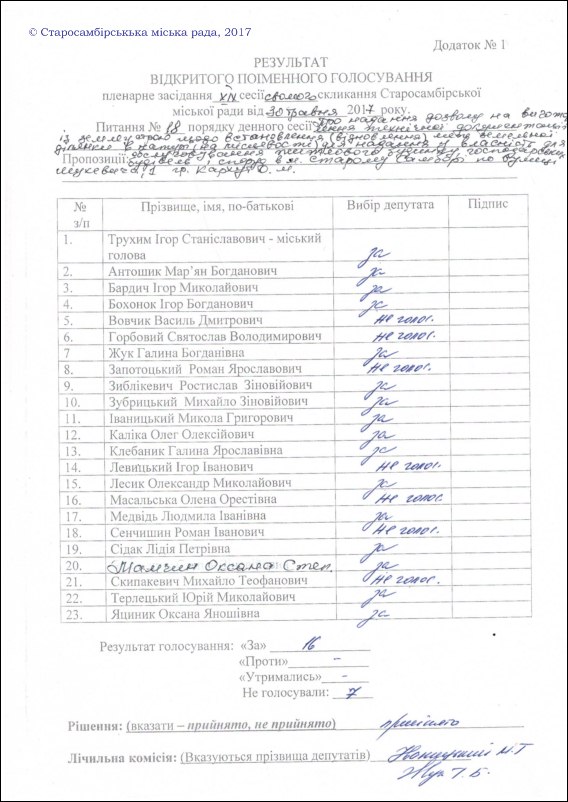 © Старосамбірсььа міська рада, 2017
Додаток № 1
РЕЗУЛЬТАТ
ВІДКРИТОГО ПОІМЕННОГО ГОЛОСУВАННЯ
пленарне засідання XIV сесії сьомого скликання Старосамбірської
міської ради від 30 травня 2017 року.
Питання № 18 порядку денного сесії: Про надання дозволу на вигот.
із землеустрою щодо встановлення (відновлення) меж земельної
ділянки в натурі (на місцевості) для надання у власність для
Пропозиції: обслуговування житлового будинку, господарських
будівель і споруд в м. Старому Самборі по вулиці
гр. О. М.
№ з/п Прізвище, імя, по-батькові Вибір депутата Підпис
1. Трухим Ігор Станіславович - міський голова за
2. Антошик Мар’ян Богданович за
3. Бардич Ігор Миколайович за
4. Бохонок Ігор Богданович за
5. Вовчик Василь Дмитрович не голос.
6. Горбовий Святослав Володимирович не голос.
7 Жук Галина Богданівна за
8. Запотоцький Роман Ярославович не голос.
9. Зиблікевич Ростислав Зіновійович за
10. Зубрицький Михайло Зіновійович за
11. Іваницький Микола Григорович за
12. Каліка Олег Олексійович за
13. Клебаник Галина Ярославівна за
14. Левицький Ігор Іванович не голос.
15. Лесик Олександр Миколайович за
16. Масальська Олена Орестівна не голос.
17. Медвідь Людмила Іванівна за
18. Сенчишин Роман Іванович не голос.
19. Сідак Лідія Петрівна за
20. Мамчин Оксана Степ. за
21. Скипакевич Михайло Теофанович не голос.
22. Терлецький Юрій Миколайович за
23. Яциник Оксана Яношівна за
Результат голосування: «За» 16
«Проти» -
«Утримались» -
Не голосували: 7
Рішення: (вказати – прийнято, не прийнято) прийнято
Лічильна комісія: (Вказуються прізвища депутатів) М.Г.
Жук Г. Б.